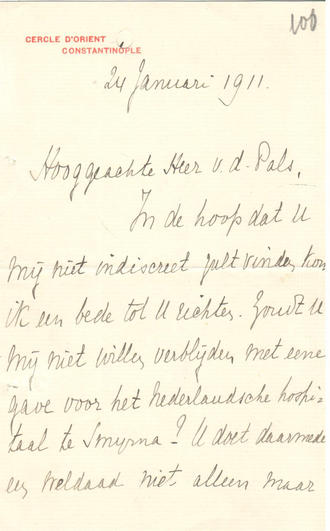 CERCLE D'ORIENT
CONSTANTINOPLE
100
24 Januari 1911.
Hooggeachte Heer v. d. Pals,
In de hoop dat U
mij niet indiscreet zult vinden kom
ik een bede tot U richten. Zoudt U
mij niet willen verblijden met eene
gave voor het Nederlandsche hospi-
taal te Smyrna? U doet daarmede
een weldaad niet alleen maar